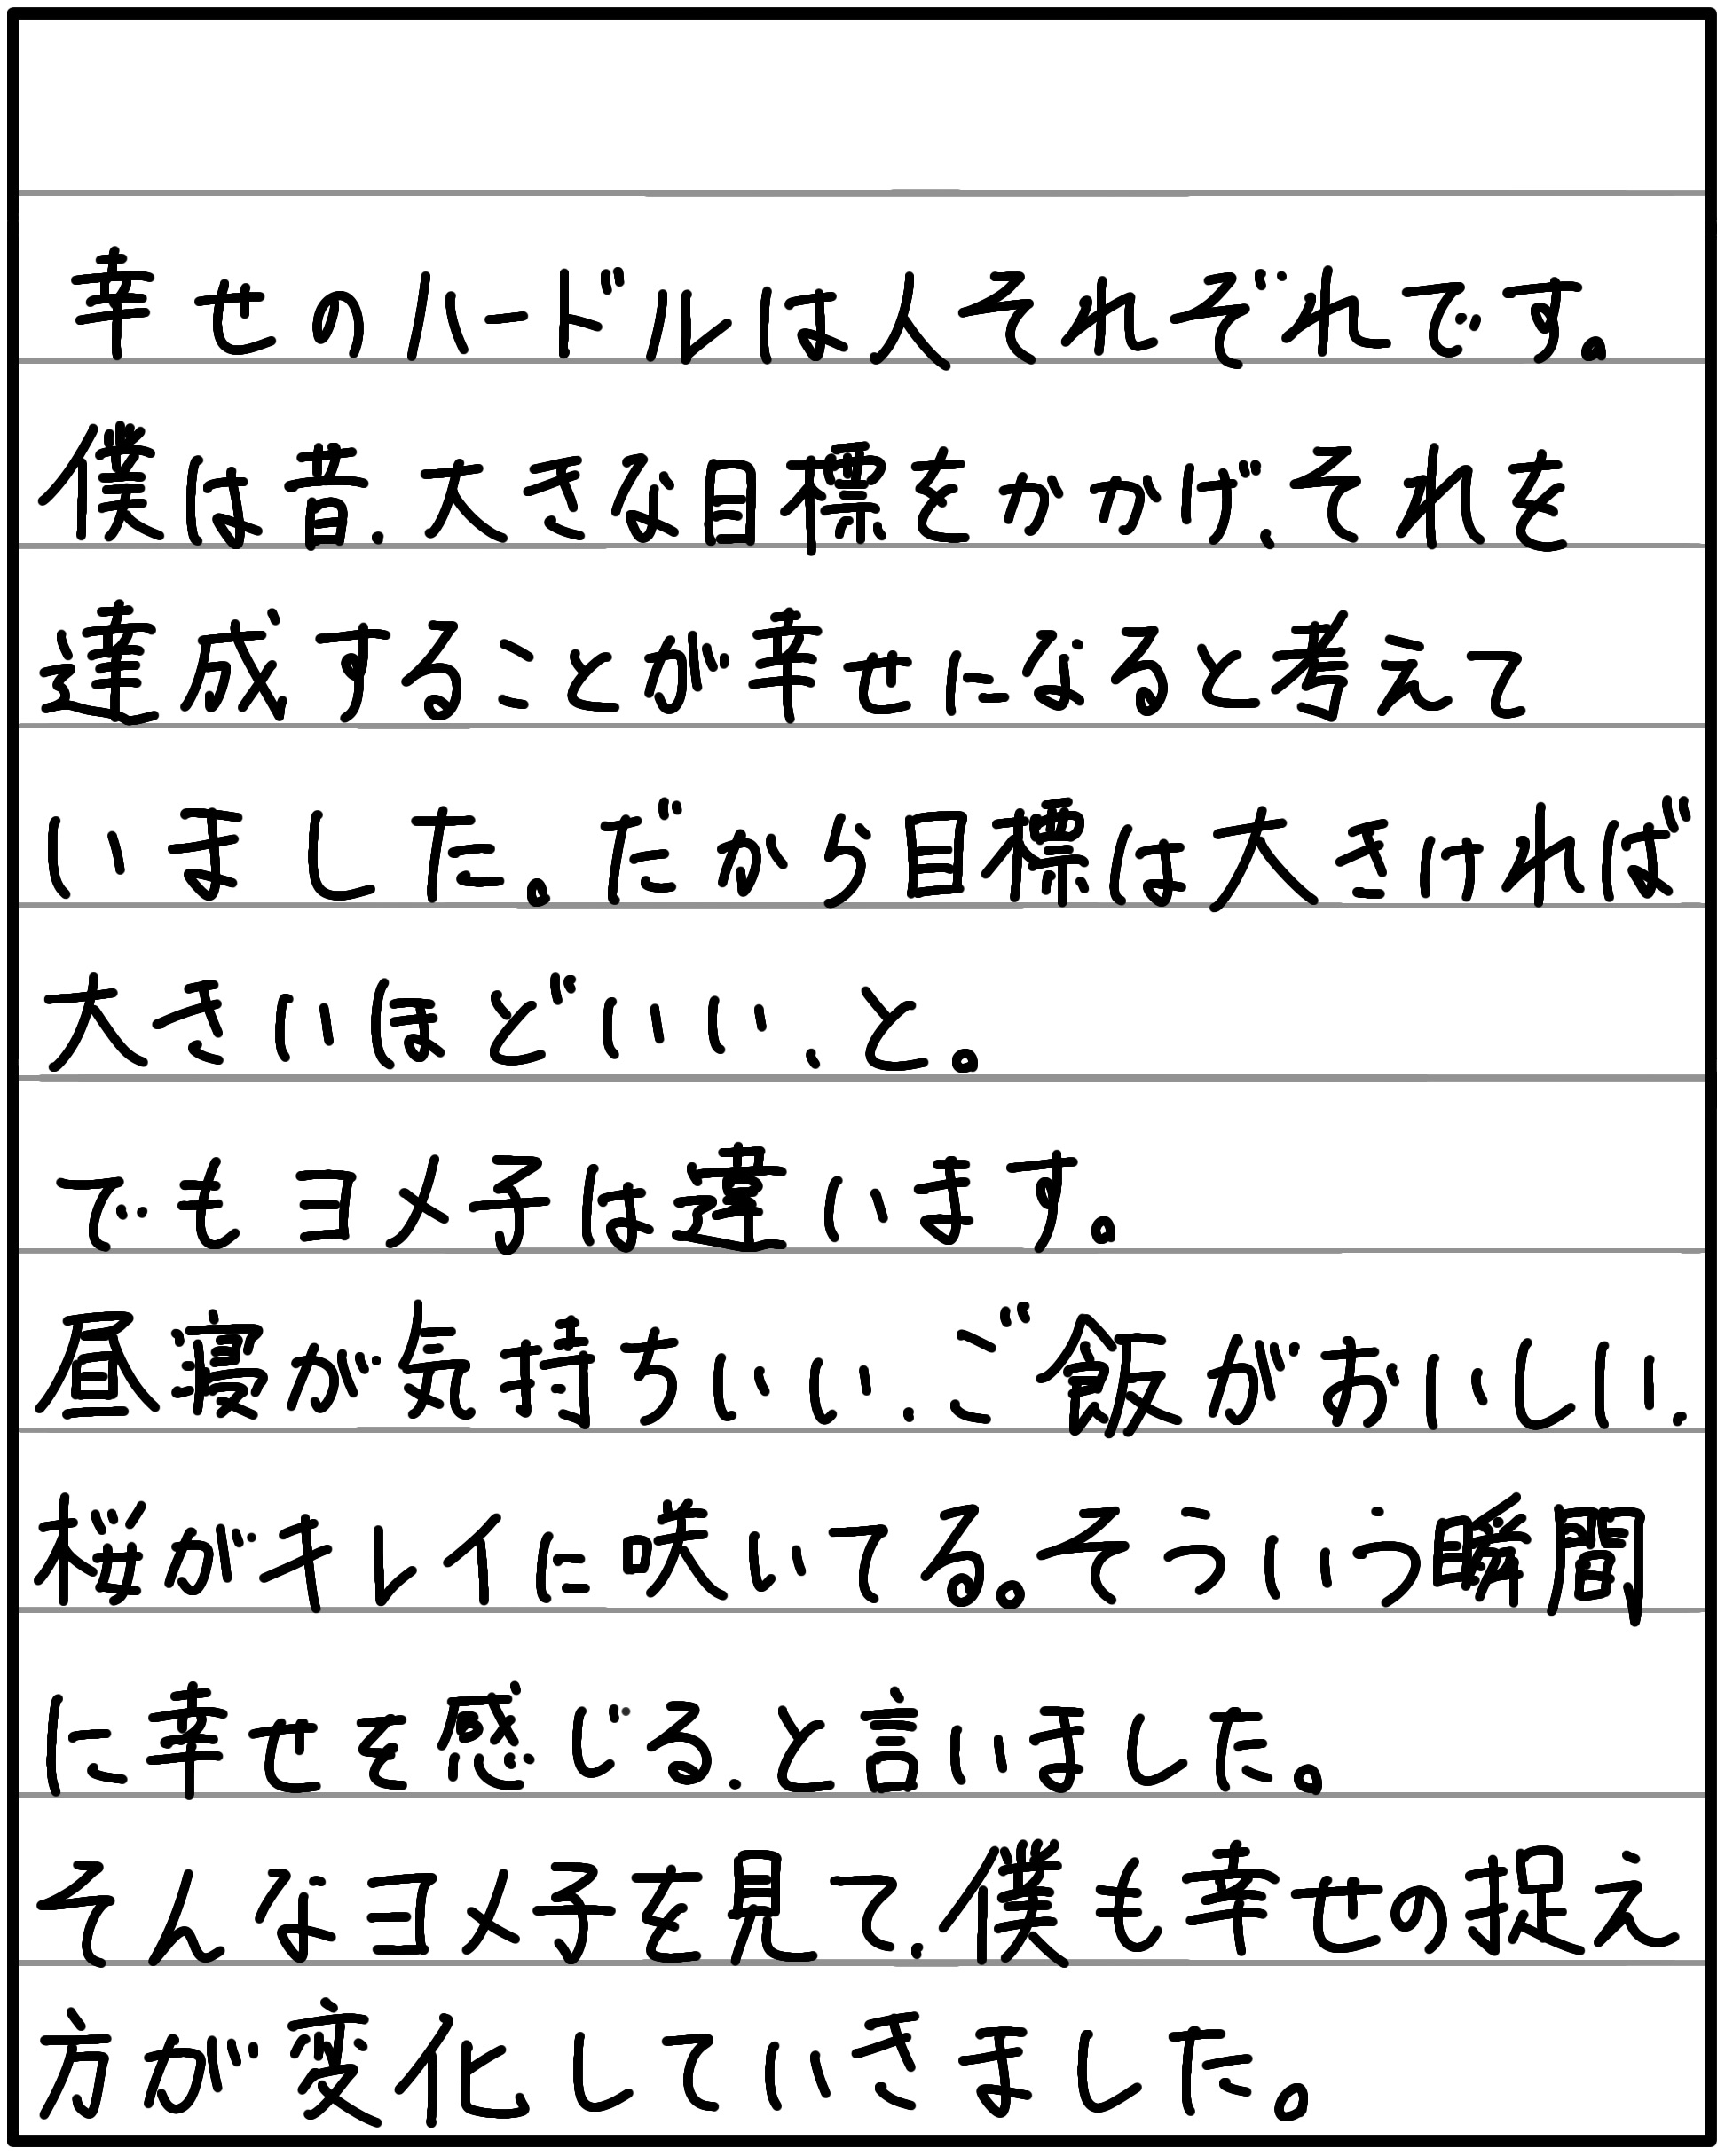 幸せのハードルは人それぞれです。
僕は昔、大きな目標をかかげ、それを
達成することが幸せになると考えて
いました。だから目標は大きければ
大きいほどいい、と。
でもヨメ子は違います。
昼寝が気持ちいい、ご飯がおいしい、
桜がキレイに咲いてる。そういう瞬間
に幸せを感じる、と言いました。
そんなヨメ子を見て、僕も幸せの捉え
方が変化していきました。